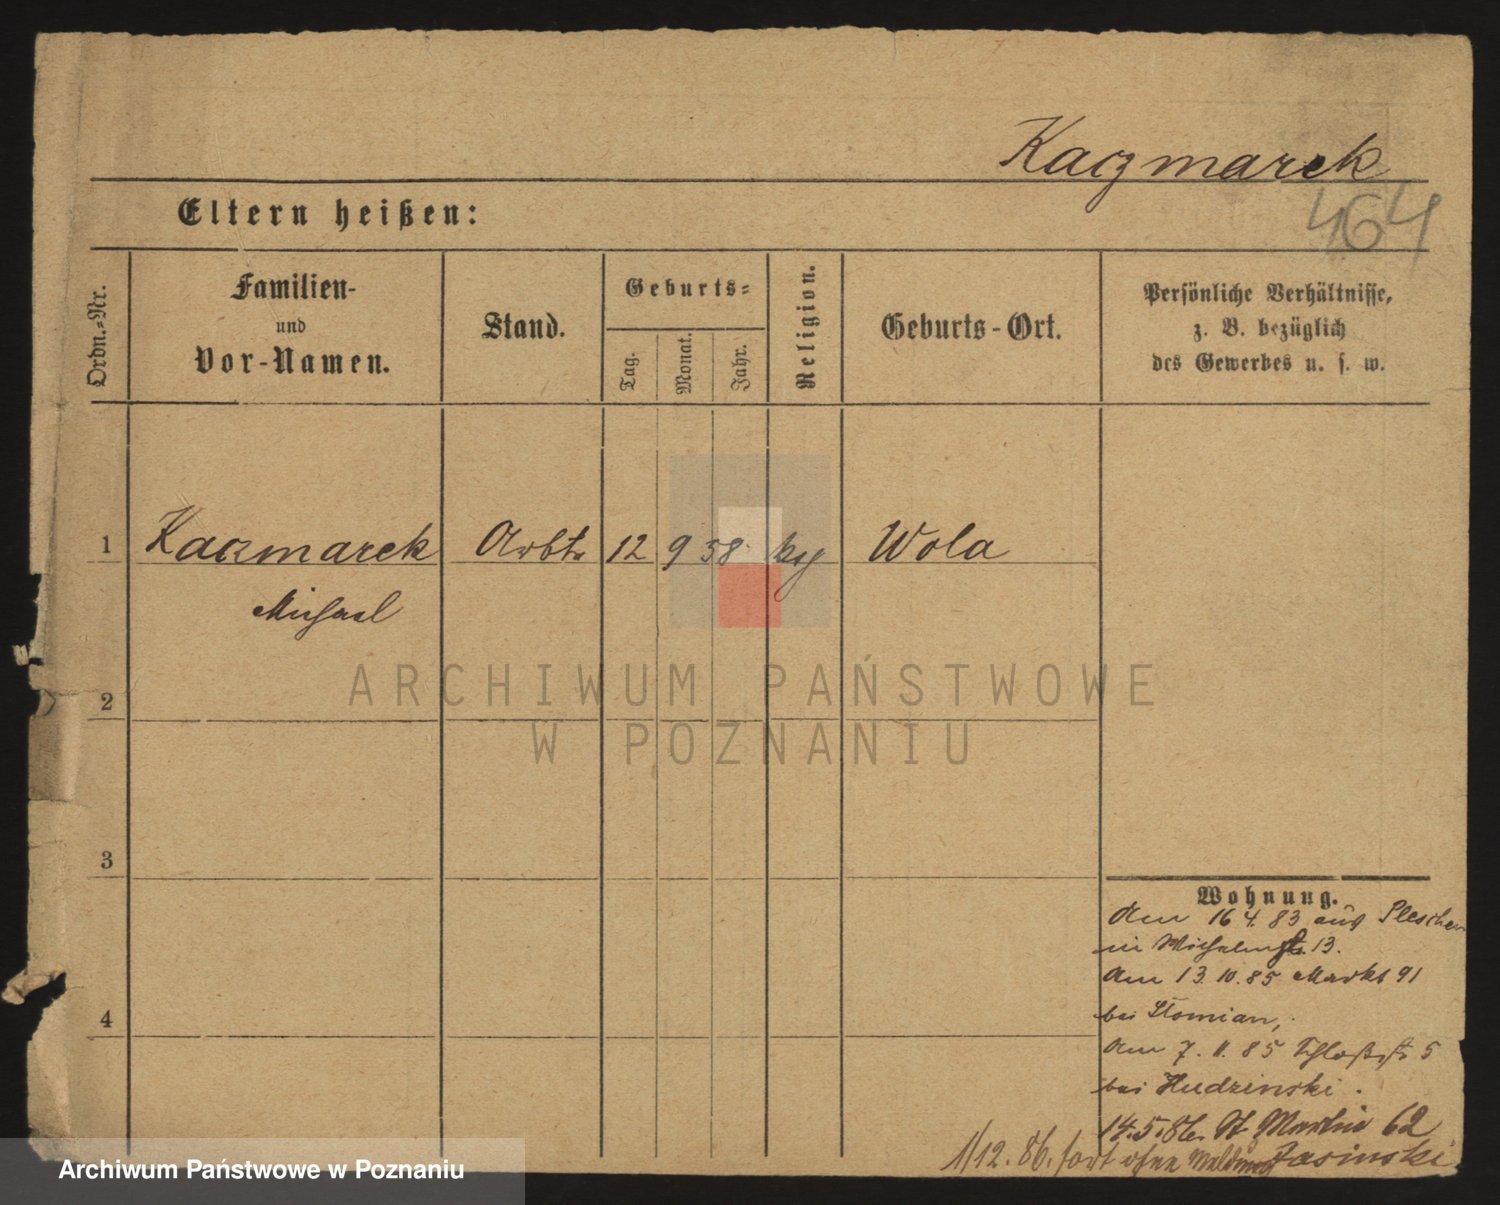 Kaczmarek
464
Eltern heißen:
Ordn.-Nr.
Familien-
und
Vor-Namen.
Stand.
Geburts-
Tag.
Monat.
Jahr.
Religion.
Geburts-Ort.
Persönliche Verhältnisse,
z. B. bezüglich
des Gewerbes u. s. w.
1 Kaczmarek Arbtr 12 9 58 Wola
Michael
2
3
4
ARCHIWUM PAŃSTWOWE
W POZNANIU
Wohnung.
Am 16 4. 83 aus Pleschen
in Wilhelmstr. 13.
Am 13. 10. 85 Markt 91
bei Slomian,
Am 7. 11. 85 Schloßstr 5
bei Hudzinski.
14. 5. 86. St Martin 62
Jasinski
1/12. 86. fort ohne Meldung
Archiwum Państwowe w Poznaniu